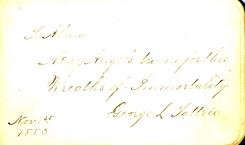 To Alma
May Angels twine for thee
Wreaths of Immortality
George L
Nov. 1st
1880